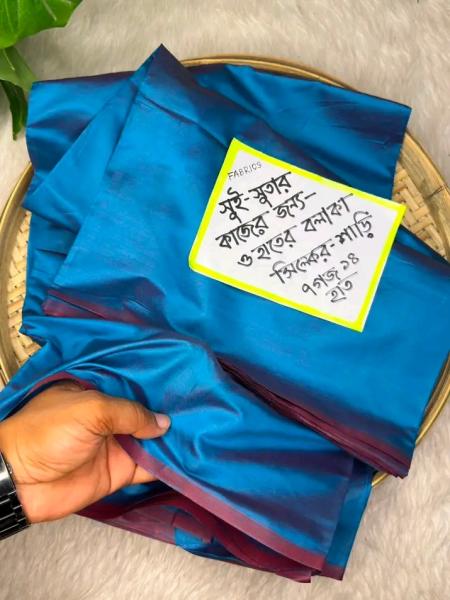 FABRICS
সুই-সুতার
কাজের জন্য
ও হাতের বলাকা
সিল্কের-শাড়ি
৭গজ ১৪
হাত